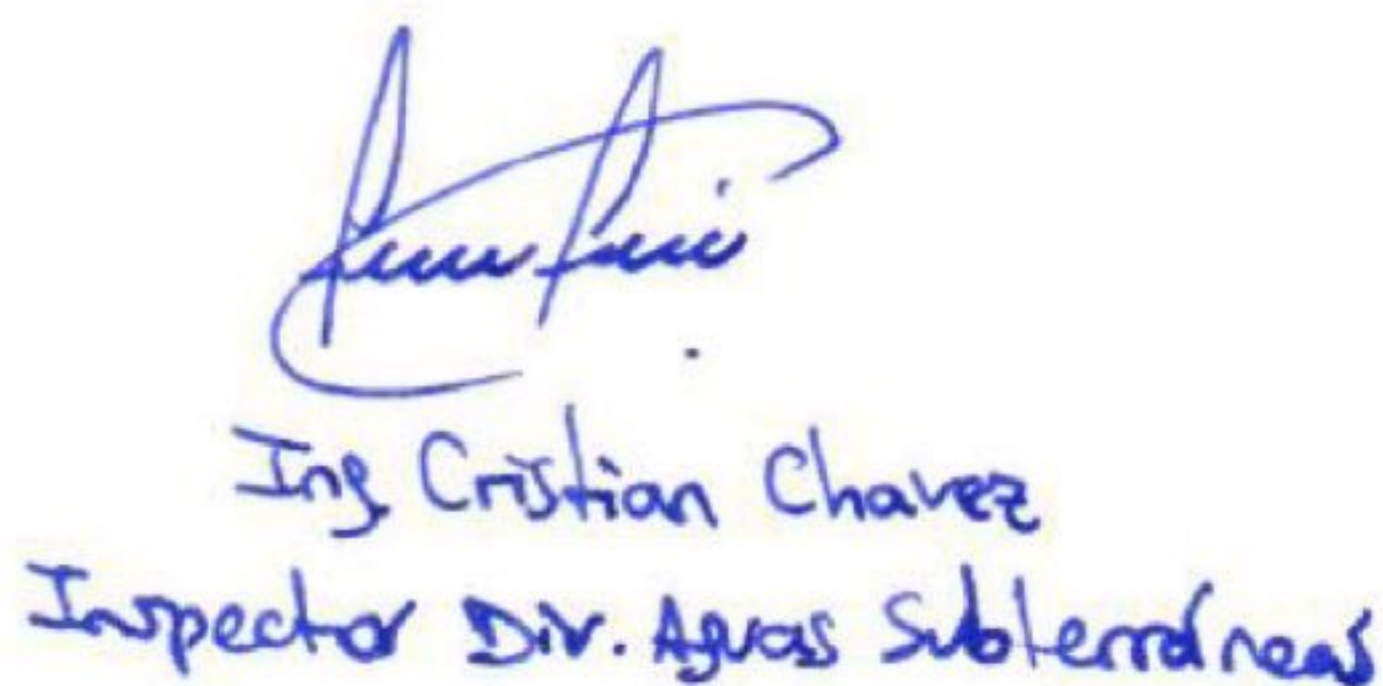 Ing. Cristian Chavez
Inspector Div. Aguas Subterráneas